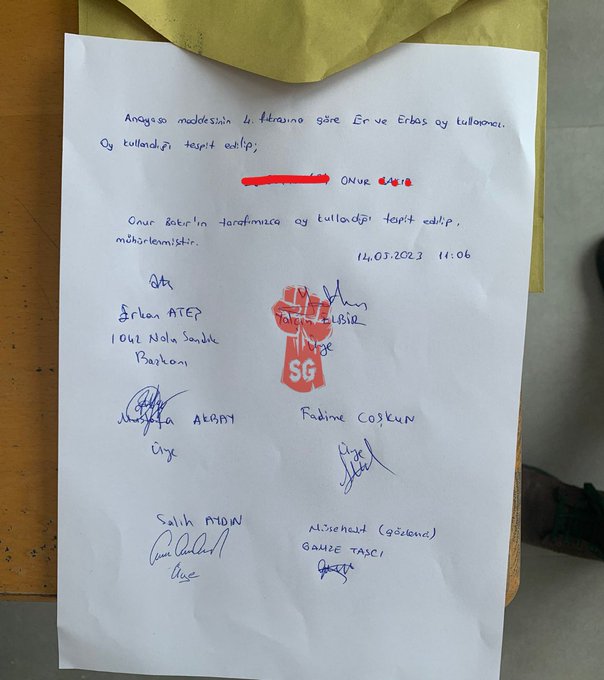 Anayasa maddesinin 4. fıkrasına göre Er ve Erbaş oy kullanamaz.
Oy kullandığı tespit edilip;
ONUR
Onur Bakır'ın tarafımızca oy kullandığı tespit edilip,
mühürlenmiştir.
14.05.2023 11:06
Erkan ATEŞ
1042 Nolu Sandık
Başkanı
Yalçın ELBİR
Üye
SG
Mustafa AKBAY
Üye
Fadime COŞKUN
Üye
Salih AYDIN
Üye
Müşehait (gözlemci)
GAMZE TAŞCI